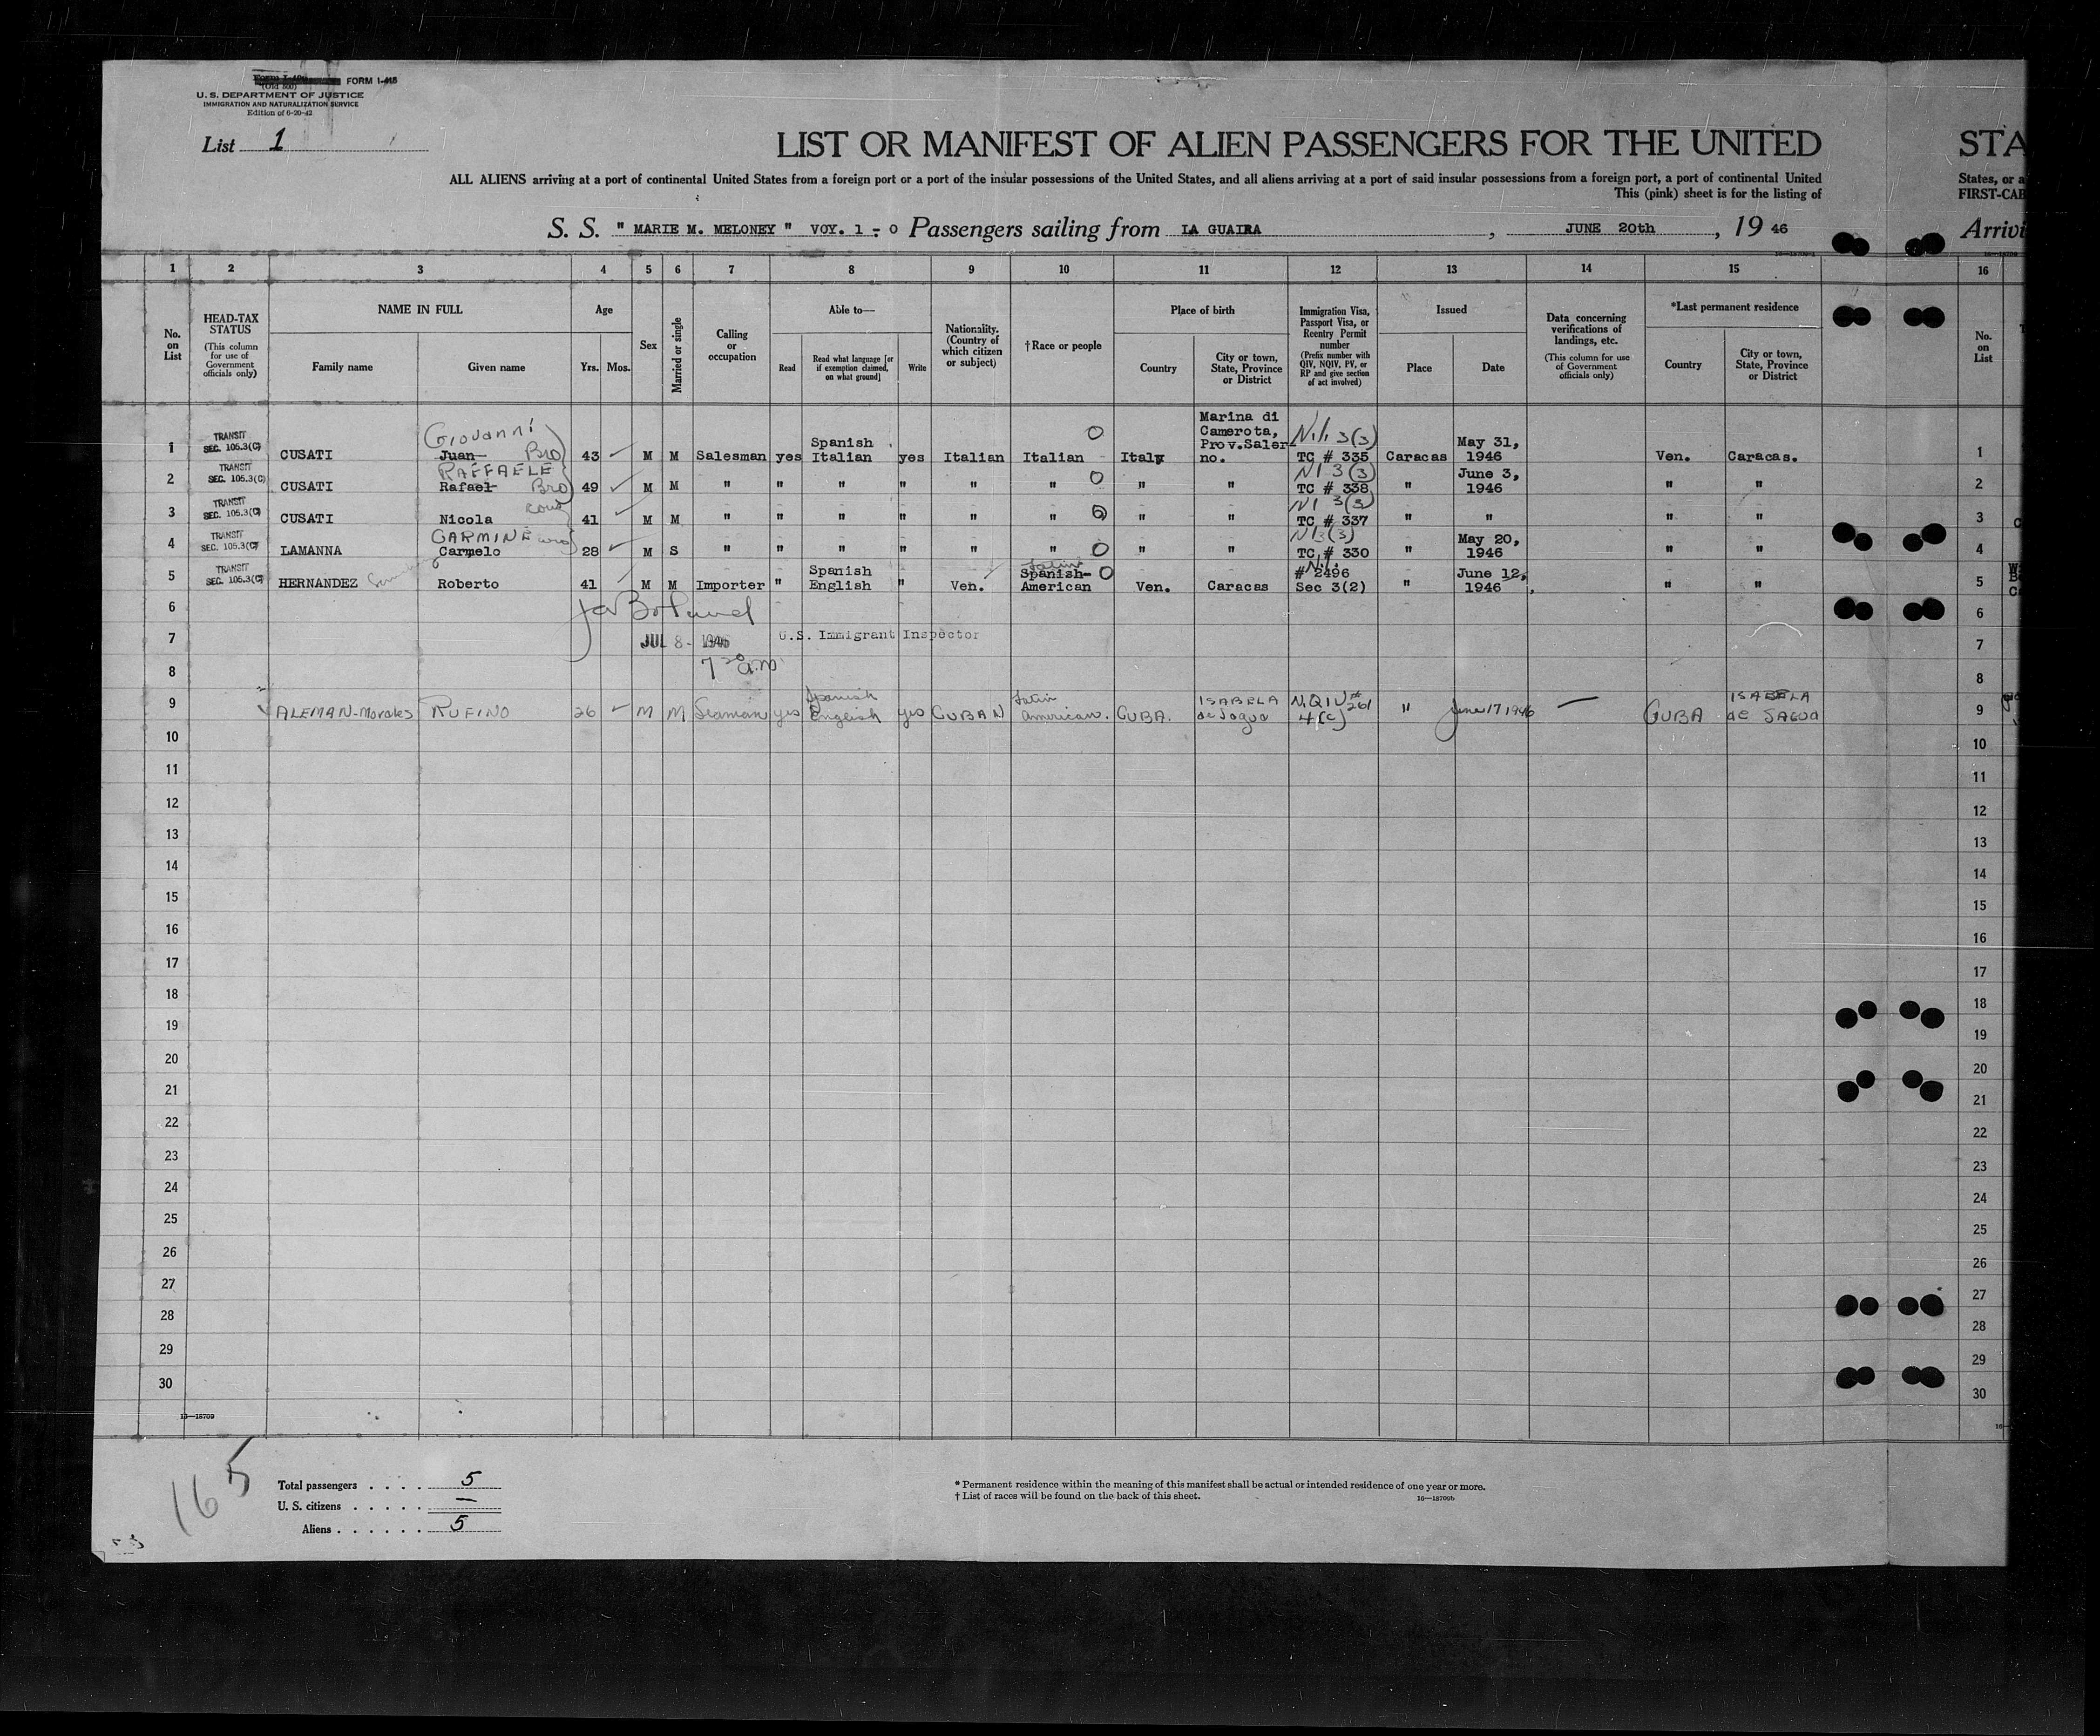 FORM I-415
(Old 500)
U. S. DEPARTMENT OF JUSTICE
IMMIGRATION AND NATURALIZATION SERVICE
Edition of 6-20-42
List 1
LIST OR MANIFEST OF ALIEN PASSENGERS FOR THE UNITED STA
ALL ALIENS arriving at a port of continental United States from a foreign port or a port of the insular possessions of the United States, and all aliens arriving at a port of said insular possessions from a foreign port, a port of continental United States, or a
This (pink) sheet is for the listing of FIRST-CAB
S. S. " MARIE M. MELONEY " VOY. 1 - 0 Passengers sailing from LA GUAIRA , JUNE 20th , 19 46 Arrivi
1 2 3 4 5 6 7 8 9 10 11 12 13 14 15 16
No. on List
HEAD-TAX STATUS (This column for use of Government officials only)
NAME IN FULL
Family name Given name
Age
Yrs. Mos.
Sex
Married or single
Calling or occupation
Able to—
Read
Read what language [or if exemption claimed, on what ground]
Write
Nationality. (Country of which citizen or subject)
†Race or people
Place of birth
Country
City or town, State, Province or District
Immigration Visa, Passport Visa, or Reentry Permit number (Prefix number with QIV, NQIV, PV, or RP and give section of act involved)
Issued
Place Date
Data concerning verifications of landings, etc. (This column for use of Government officials only)
*Last permanent residence
Country
City or town, State, Province or District
No. on List
1 TRANSIT SEC. 105.3(C) CUSATI Giovanni Juan Bro 43 M M Salesman yes Spanish Italian yes Italian Italian Italy Marina di Camerota, Prov.Salerno. N.I. 3(3) TC # 335 Caracas May 31, 1946 Ven. Caracas. 1
2 TRANSIT SEC. 105.3(C) CUSATI RAFFAELE Rafael Bro 49 M M " " " " " " " " NI 3(3) TC # 338 " June 3, 1946 " " 2
3 TRANSIT SEC. 105.3(C) CUSATI Nicola 41 M M " " " " " " " " NI 3(3) TC # 337 " " " " 3
4 TRANSIT SEC. 105.3(C) LAMANNA CARMINE Carmelo 28 M S " " " " " " " " TC # 330 " May 20, 1946 " " 4
5 TRANSIT SEC. 105.3(C) HERNANDEZ Roberto 41 M M Importer " Spanish English " Ven. Latin Spanish-American Ven. Caracas N.I. # 2496 Sec 3(2) " June 12, 1946 " " 5
6 6
7 JUL 8 - 1946 U.S. Immigrant Inspector 7
8 7 30 a.m 8
9 ALEMAN-Morales RUFINO 26 M M Seaman yes Spanish English yes CUBAN Latin American. CUBA. ISABELA de Sagua NQIV # 261 4(c) " June 17 1946 — CUBA ISABELA de SAGUA 9
10 10
11 11
12 12
13 13
14 14
15 15
16 16
17 17
18 18
19 19
20 20
21 21
22 22
23 23
24 24
25 25
26 26
27 27
28 28
29 29
30 30
16—18709
165
Total passengers . . . . 5
U. S. citizens . . . . . —
Aliens . . . . . . 5
* Permanent residence within the meaning of this manifest shall be actual or intended residence of one year or more.
† List of races will be found on the back of this sheet.
16—18709b